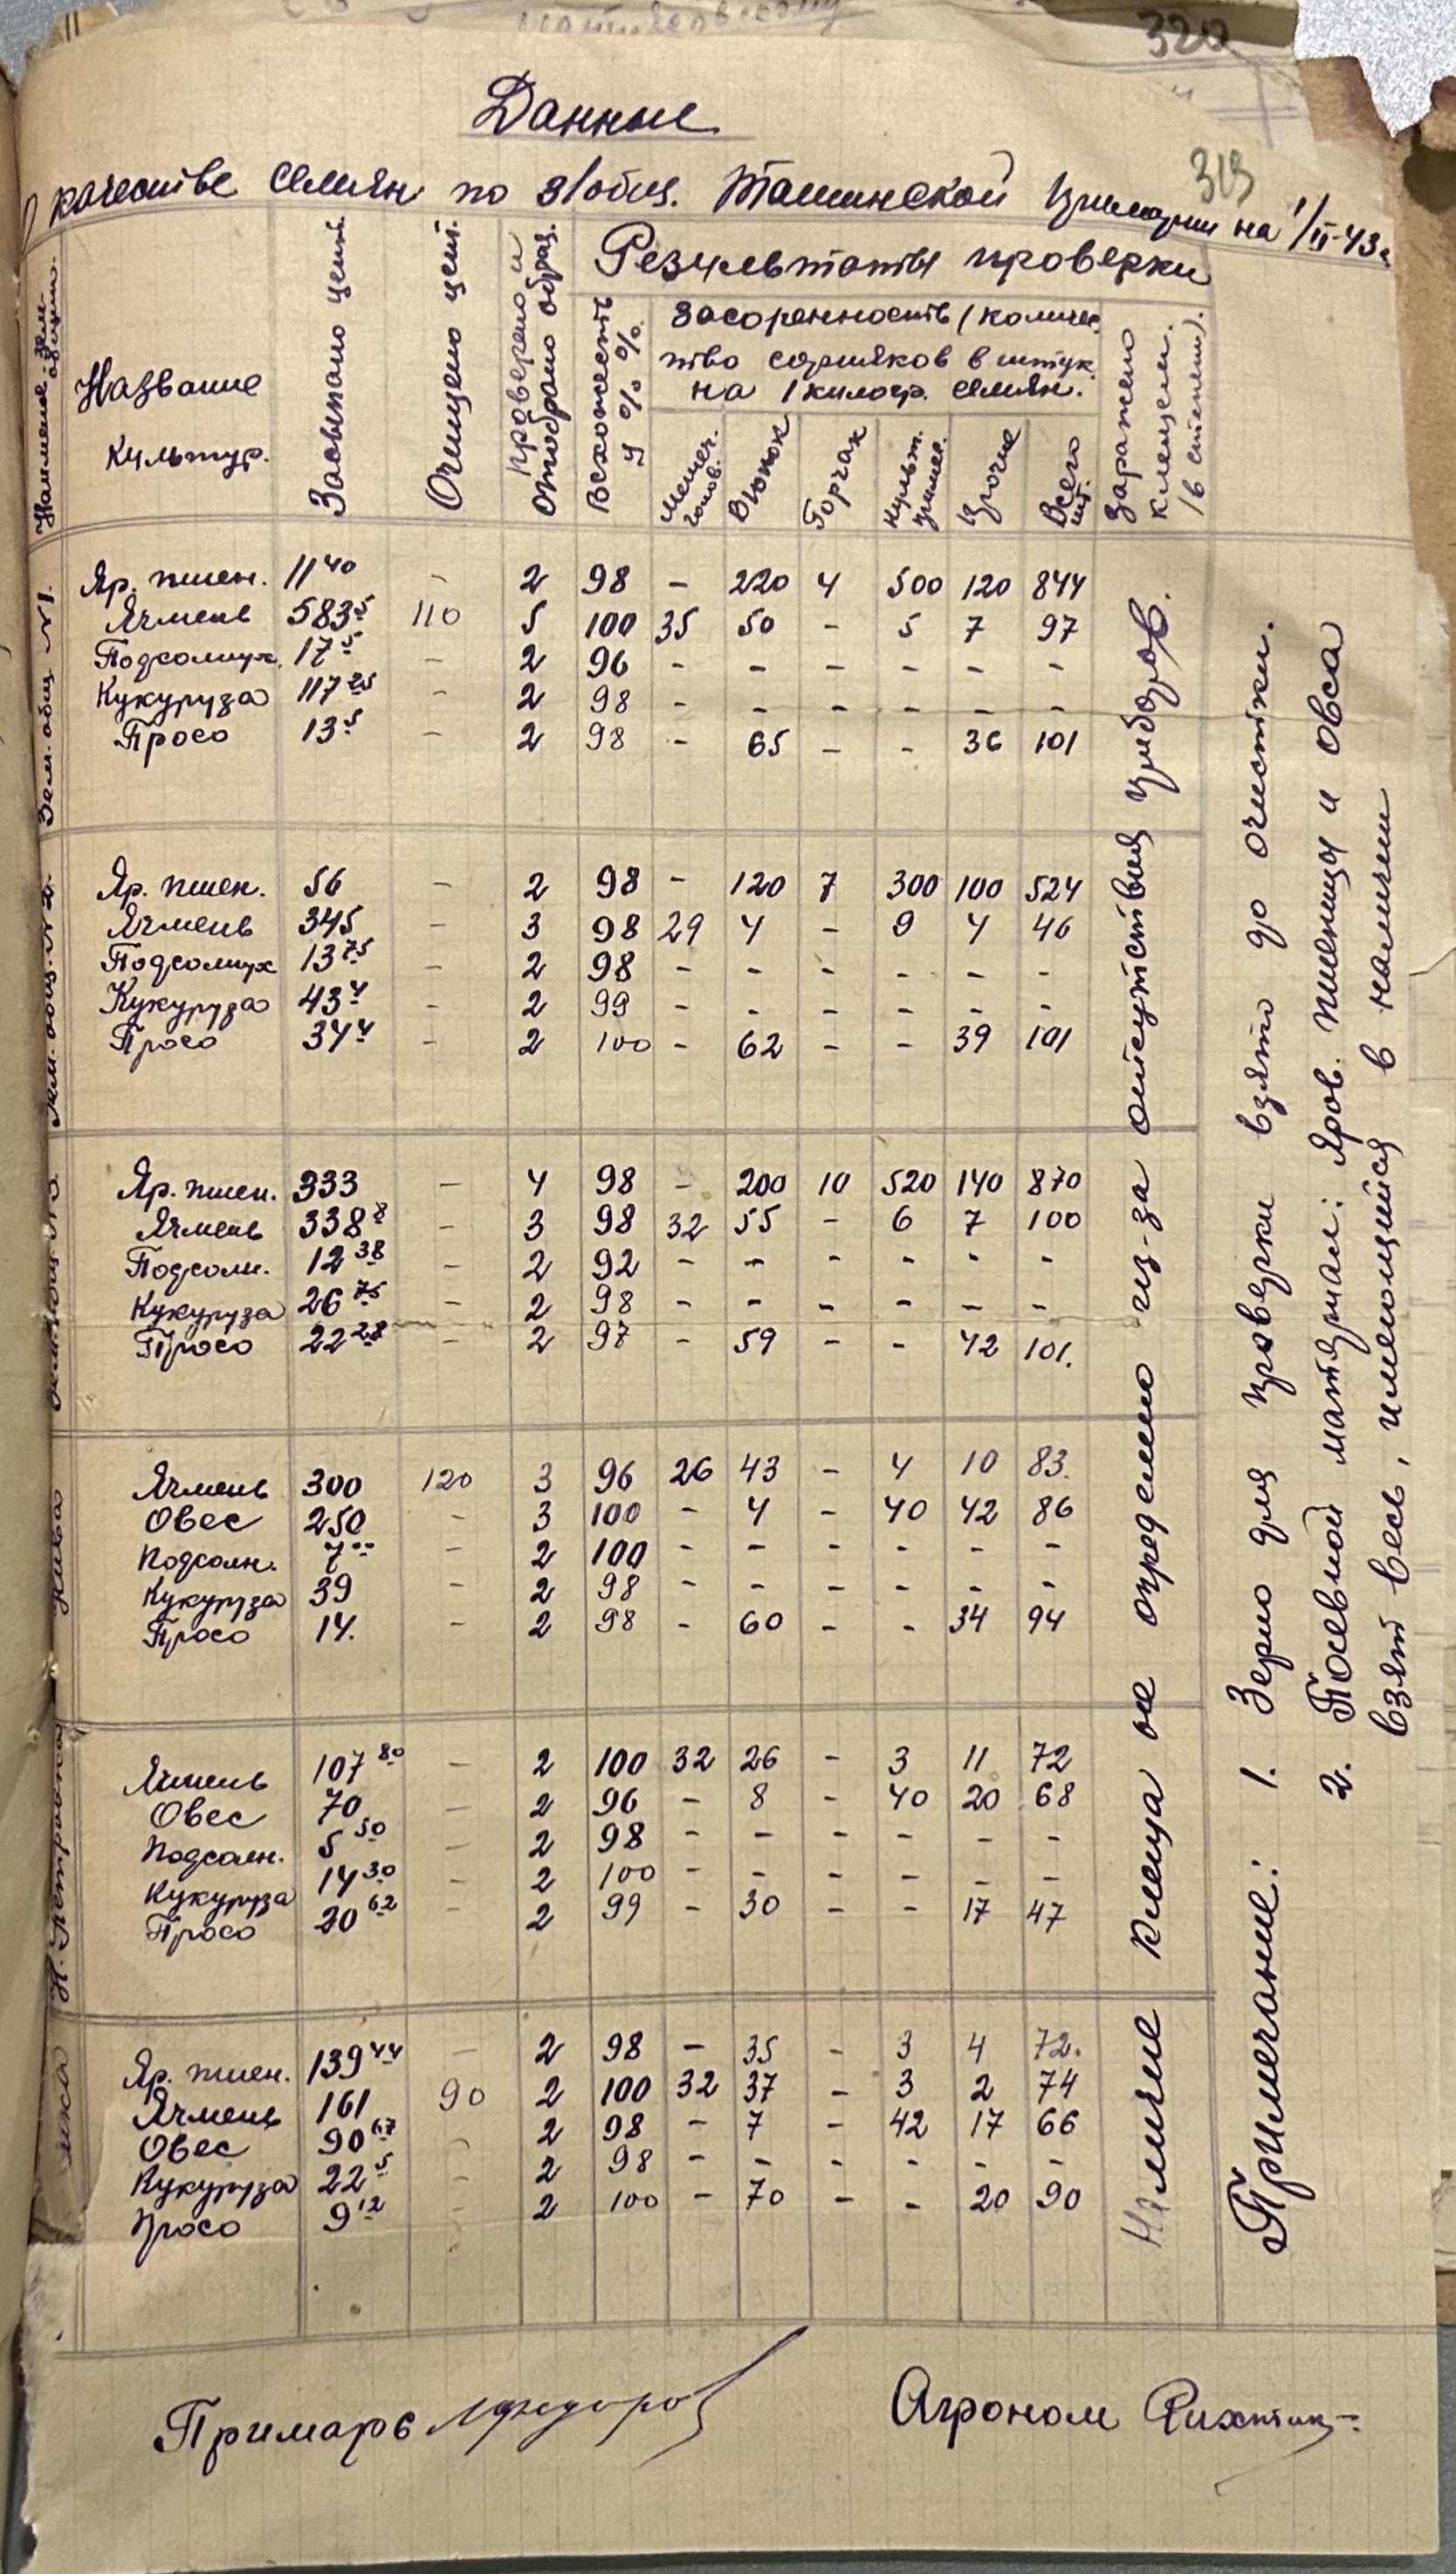 320
319
Данные
о качестве семян по з/общ. Ташинской примарии на 1/II-43г
Наименов. зем. общин.
Название культур.
Засыпано цент.
Очищено цент.
Проверено и отобрано образ.
Результаты проверки
Всхожесть в % %
Засоренность (количес
тво сорняков в штук.
на 1 килогр. семян.
Вьюнок
Горчак
Культ. примес.
Прочие
Всего шт.
Заражено клещем. (в степени).
Зем. общ. №1.
Яр. пшен. 11 40 - 2 98 - 220 4 500 120 844
Ячмень 583 5 110 5 100 35 50 - 5 7 97
Подсолнух. 17 5 - 2 96 - - - - - -
Кукуруза 117 25 - 2 98 - - - - - -
Просо 13 5 - 2 98 - 65 - - 36 101
Зем. общ. №2.
Яр. пшен. 56 - 2 98 - 120 7 300 100 524
Ячмень 345 - 3 98 29 4 - 9 4 46
Подсолнух 13 75 - 2 98 - - - - - -
Кукуруза 43 4 - 2 99 - - - - - -
Просо 34 4 - 2 100 - 62 - - 39 101
Яр. пшен. 333 - 4 98 - 200 10 520 140 870
Ячмень 338 8 - 3 98 32 55 - 6 7 100
Подсолн. 12 38 - 2 92 - - - - - -
Кукуруза 26 75 - 2 98 - - - - - -
Просо 22 28 - 2 97 - 59 - - 42 101.
Ячмень 300 120 3 96 26 43 - 4 10 83.
Овес 250 - 3 100 - 4 - 40 42 86
Подсолн. 7 00 - 2 100 - - - - - -
Кукуруза 39 - 2 98 - - - - - -
Просо 14. - 2 98 - 60 - - 34 94
Н. Петровка
Ячмень 107 80 - 2 100 32 26 - 3 11 72
Овес 70 - 2 96 - 8 - 40 20 68
Подсолн. 5 50 - 2 98 - - - - - -
Кукуруза 14 30 - 2 100 - - - - - -
Просо 20 62 - 2 99 - 30 - - 17 47
Яр. пшен. 139 44 - 2 98 - 35 - 3 4 72.
Ячмень 161 90 2 100 32 37 - 3 2 74
Овес 90 67 - 2 98 - 7 - 42 17 66
Кукуруза 22 5 - 2 98 - - - - - -
Просо 9 12 - 2 100 - 70 - - 20 90
Наличие клеща не определено из-за отсутствия приборов.
Примечание: 1. Зерно для проверки взято до очистки.
2. Посевной материал: яров. пшеница и овса
взят весь, имеющийся в наличии
Примарь
Агроном